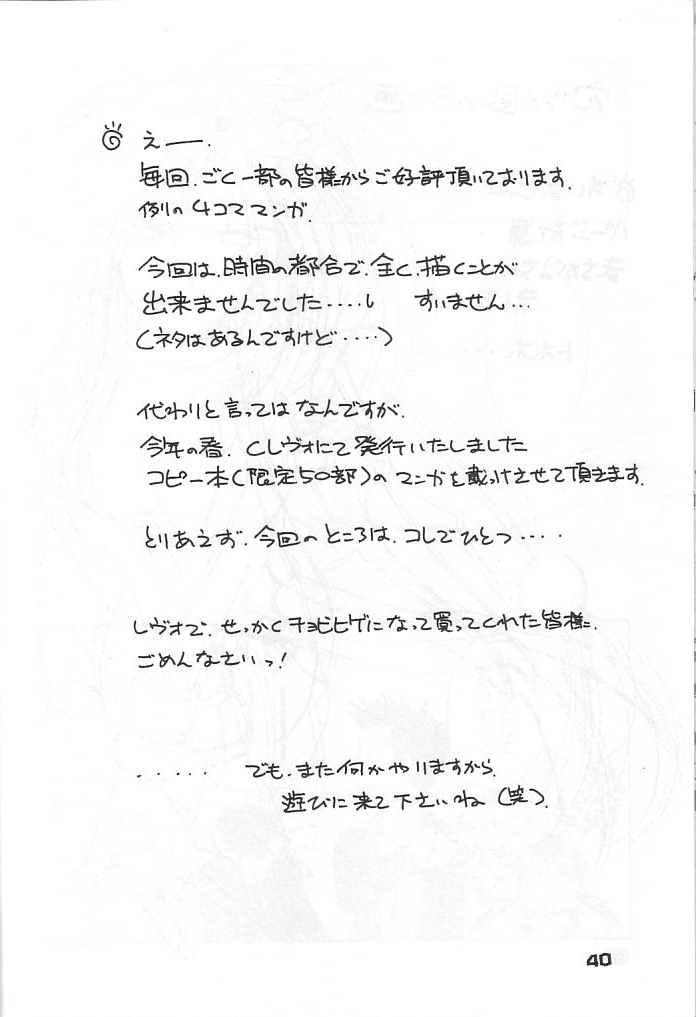 えー.
毎回.ごく一部の皆様からご好評頂いております.
例の4コママンガ.
今回は.時間の都合で.全く.描くことが
出来ませんでした‥‥し すいません…
(ネタはあるんですけど‥‥)
代わりと言ってはなんですが.
今年の春.Cレヴォにて発行いたしました
コピー本(限定50部)のマンガを載っけさせて頂きます.
とりあえず.今回のところは.コレでひとつ‥‥
レヴォで.せっかくチョビヒゲになって買ってくれた皆様.
ごめんなさいっ!
‥‥‥ でも.また何かやりますから.
遊びに来て下さいね(笑).
40